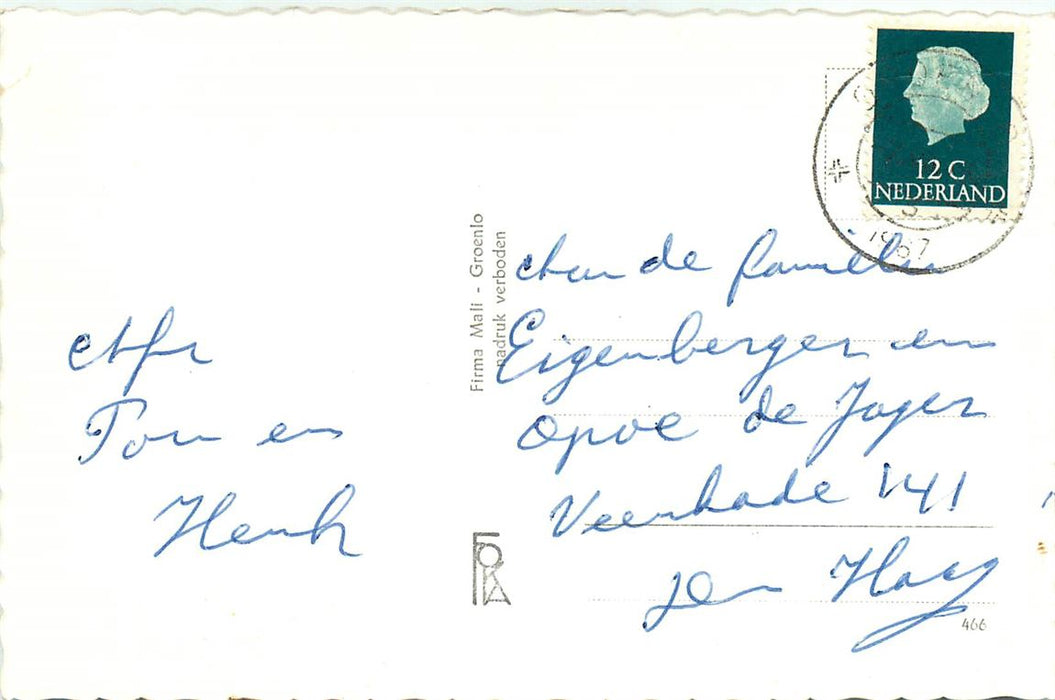 12 C
NEDERLAND
1967
Firma Mali - Groenlo
nadruk verboden
Afr
Ton en
Henk
Aan de familie
Eigenberger en
Opoe de Jager
Veenkade 141
Den Haag
FOKA
466